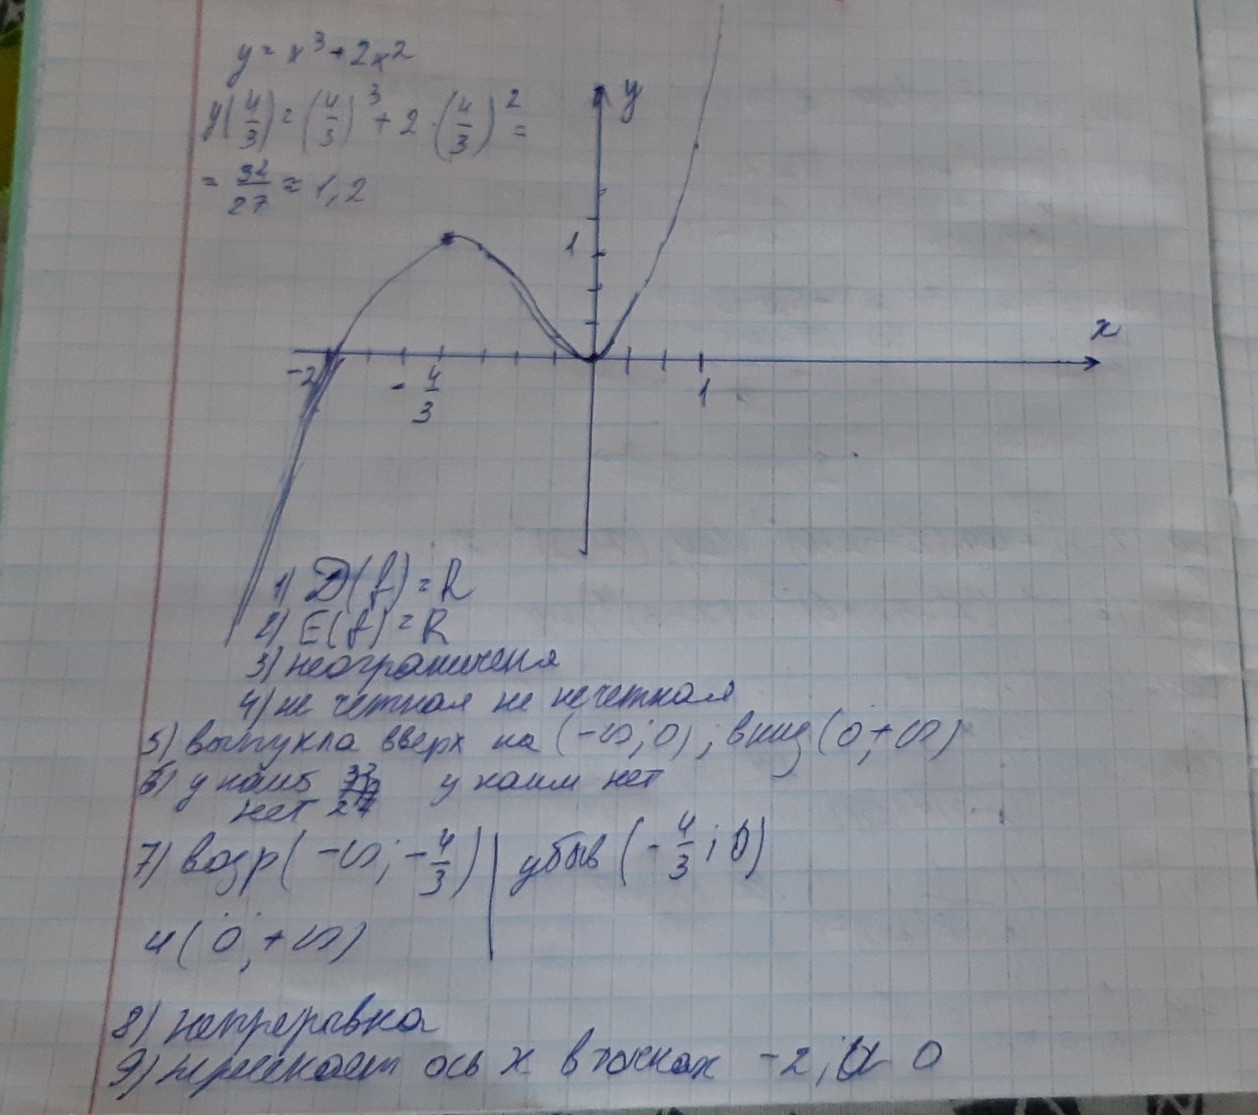 y = x³ + 2x²
y(4/3) = (4/3)³ + 2 · (4/3)² =
= 32/27 ≈ 1,2
y
1
x
-2
-4/3
1
1) D(f) = R
2) E(f) = R
3) неограничена
4) не четная не нечетная
5) выпукла вверх на (-∞; 0), вниз (0; +∞)
6) y наиб нет y наим нет
7) возр (-∞; -4/3) | убыв (-4/3; 0)
и (0; +∞)
8) непрерывна
9) пересекает ось x в точках -2; и 0